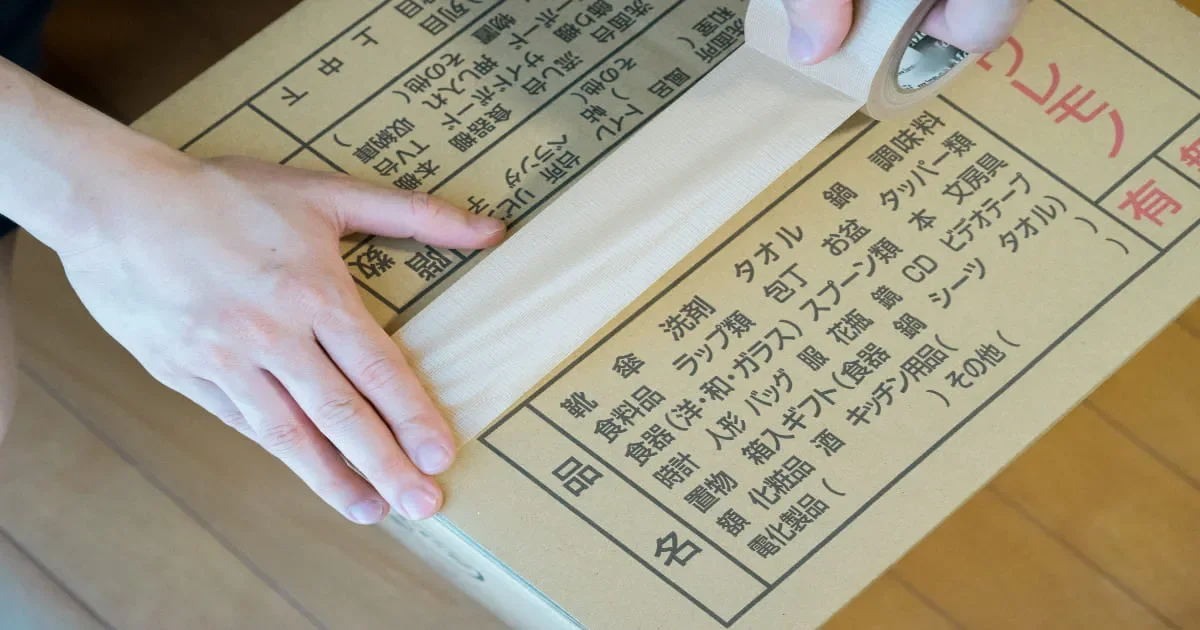 ワレモノ
有 無
品名
傘 洗剤 タオル 鍋 調味料
食料品 ラップ類 包丁 お盆 タッパー類
食器(洋・和・ガラス)スプーン類 本 文房具
時計 人形 バッグ 服 花瓶 鏡 CD ビデオテープ
置物 箱入ギフト(食器 鍋 シーツ タオル)
額 化粧品 酒 キッチン用品( )
電化製品( )その他( )
階数
台所 リビング
トイレ ベランダ
風呂
洗面所
和室( )帖
その他(
本棚 食器棚 流し台 洗面台
TV台 サイドボード 飾り棚
収納庫 押し入れ 物置
その他( )
列目
上 中 下